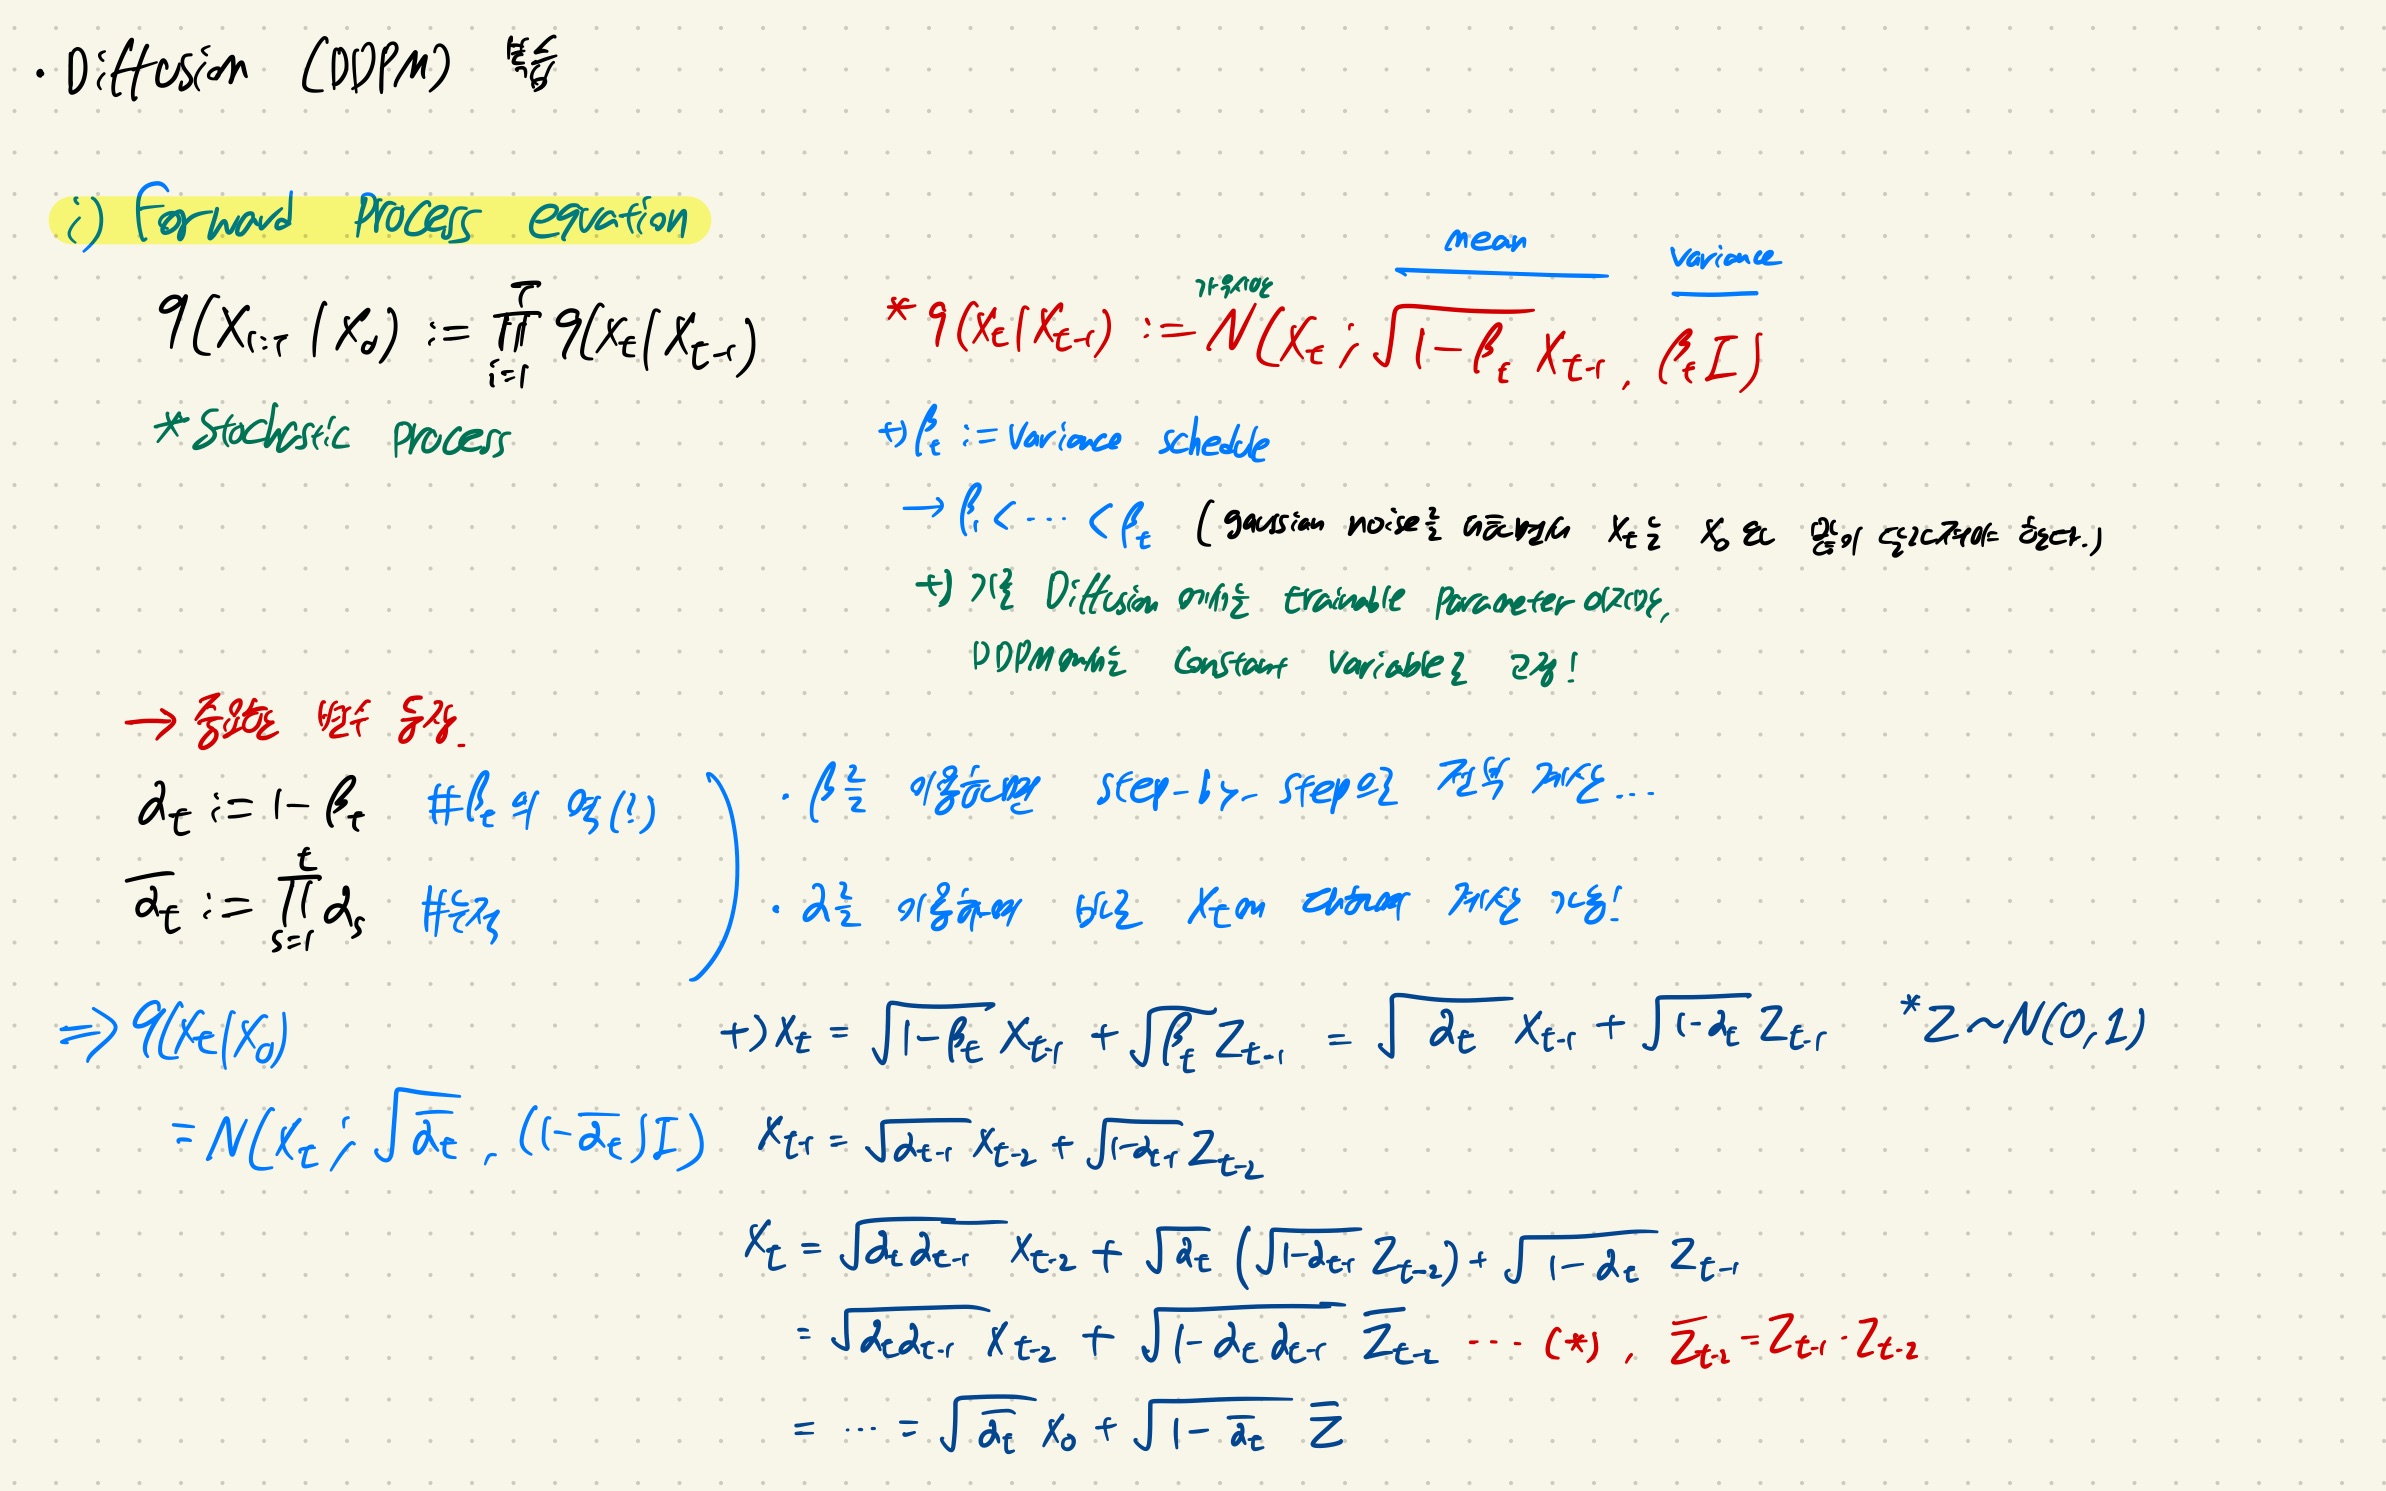 · Diffusion (DDPM) 복습
i) Forward Process equation
q(X₁:T | X₀) := ∏ᵢ₌₁ᵀ q(Xt | Xt-1)
* Stochastic Process
mean
variance
가우시안
* q(Xt | Xt-1) := N(Xt ; √(1-βt) Xt-1, βt I)
+) βt := Variance schedule
→ β₁ < ··· < βt (gaussian noise를 Xt는 X₀와 많이 달라져야 한다.)
+) 기존 Diffusion 에서는 trainable Parameter 이지만,
DDPM에서는 Constant Variable로 고정!
→ 중요한 변수 등장.
αt := 1 - βt #βt의 역(?)
ᾱt := ∏ₛ₌₁ᵗ αs #누적
· β를 이용하면 step-by-step으로 전부 계산...
· α를 이용하여 바로 Xt에 대하여 계산 가능!
⇒ q(Xt | X₀)
= N(Xt ; √ᾱt , (1-ᾱt)I)
+) Xt = √(1-βt) Xt-1 + √βt Zt-1 = √αt Xt-1 + √(1-αt) Zt-1 * Z ~ N(0, 1)
Xt-1 = √αt-1 Xt-2 + √(1-αt-1) Zt-2
Xt = √(αt αt-1) Xt-2 + √αt (√(1-αt-1) Zt-2) + √(1-αt) Zt-1
= √(αt αt-1) Xt-2 + √(1-αt αt-1) Z̄t-2 ··· (*) , Z̄t-2 = Zt-1 · Zt-2
= ··· = √ᾱt X₀ + √(1-ᾱt) Z̄